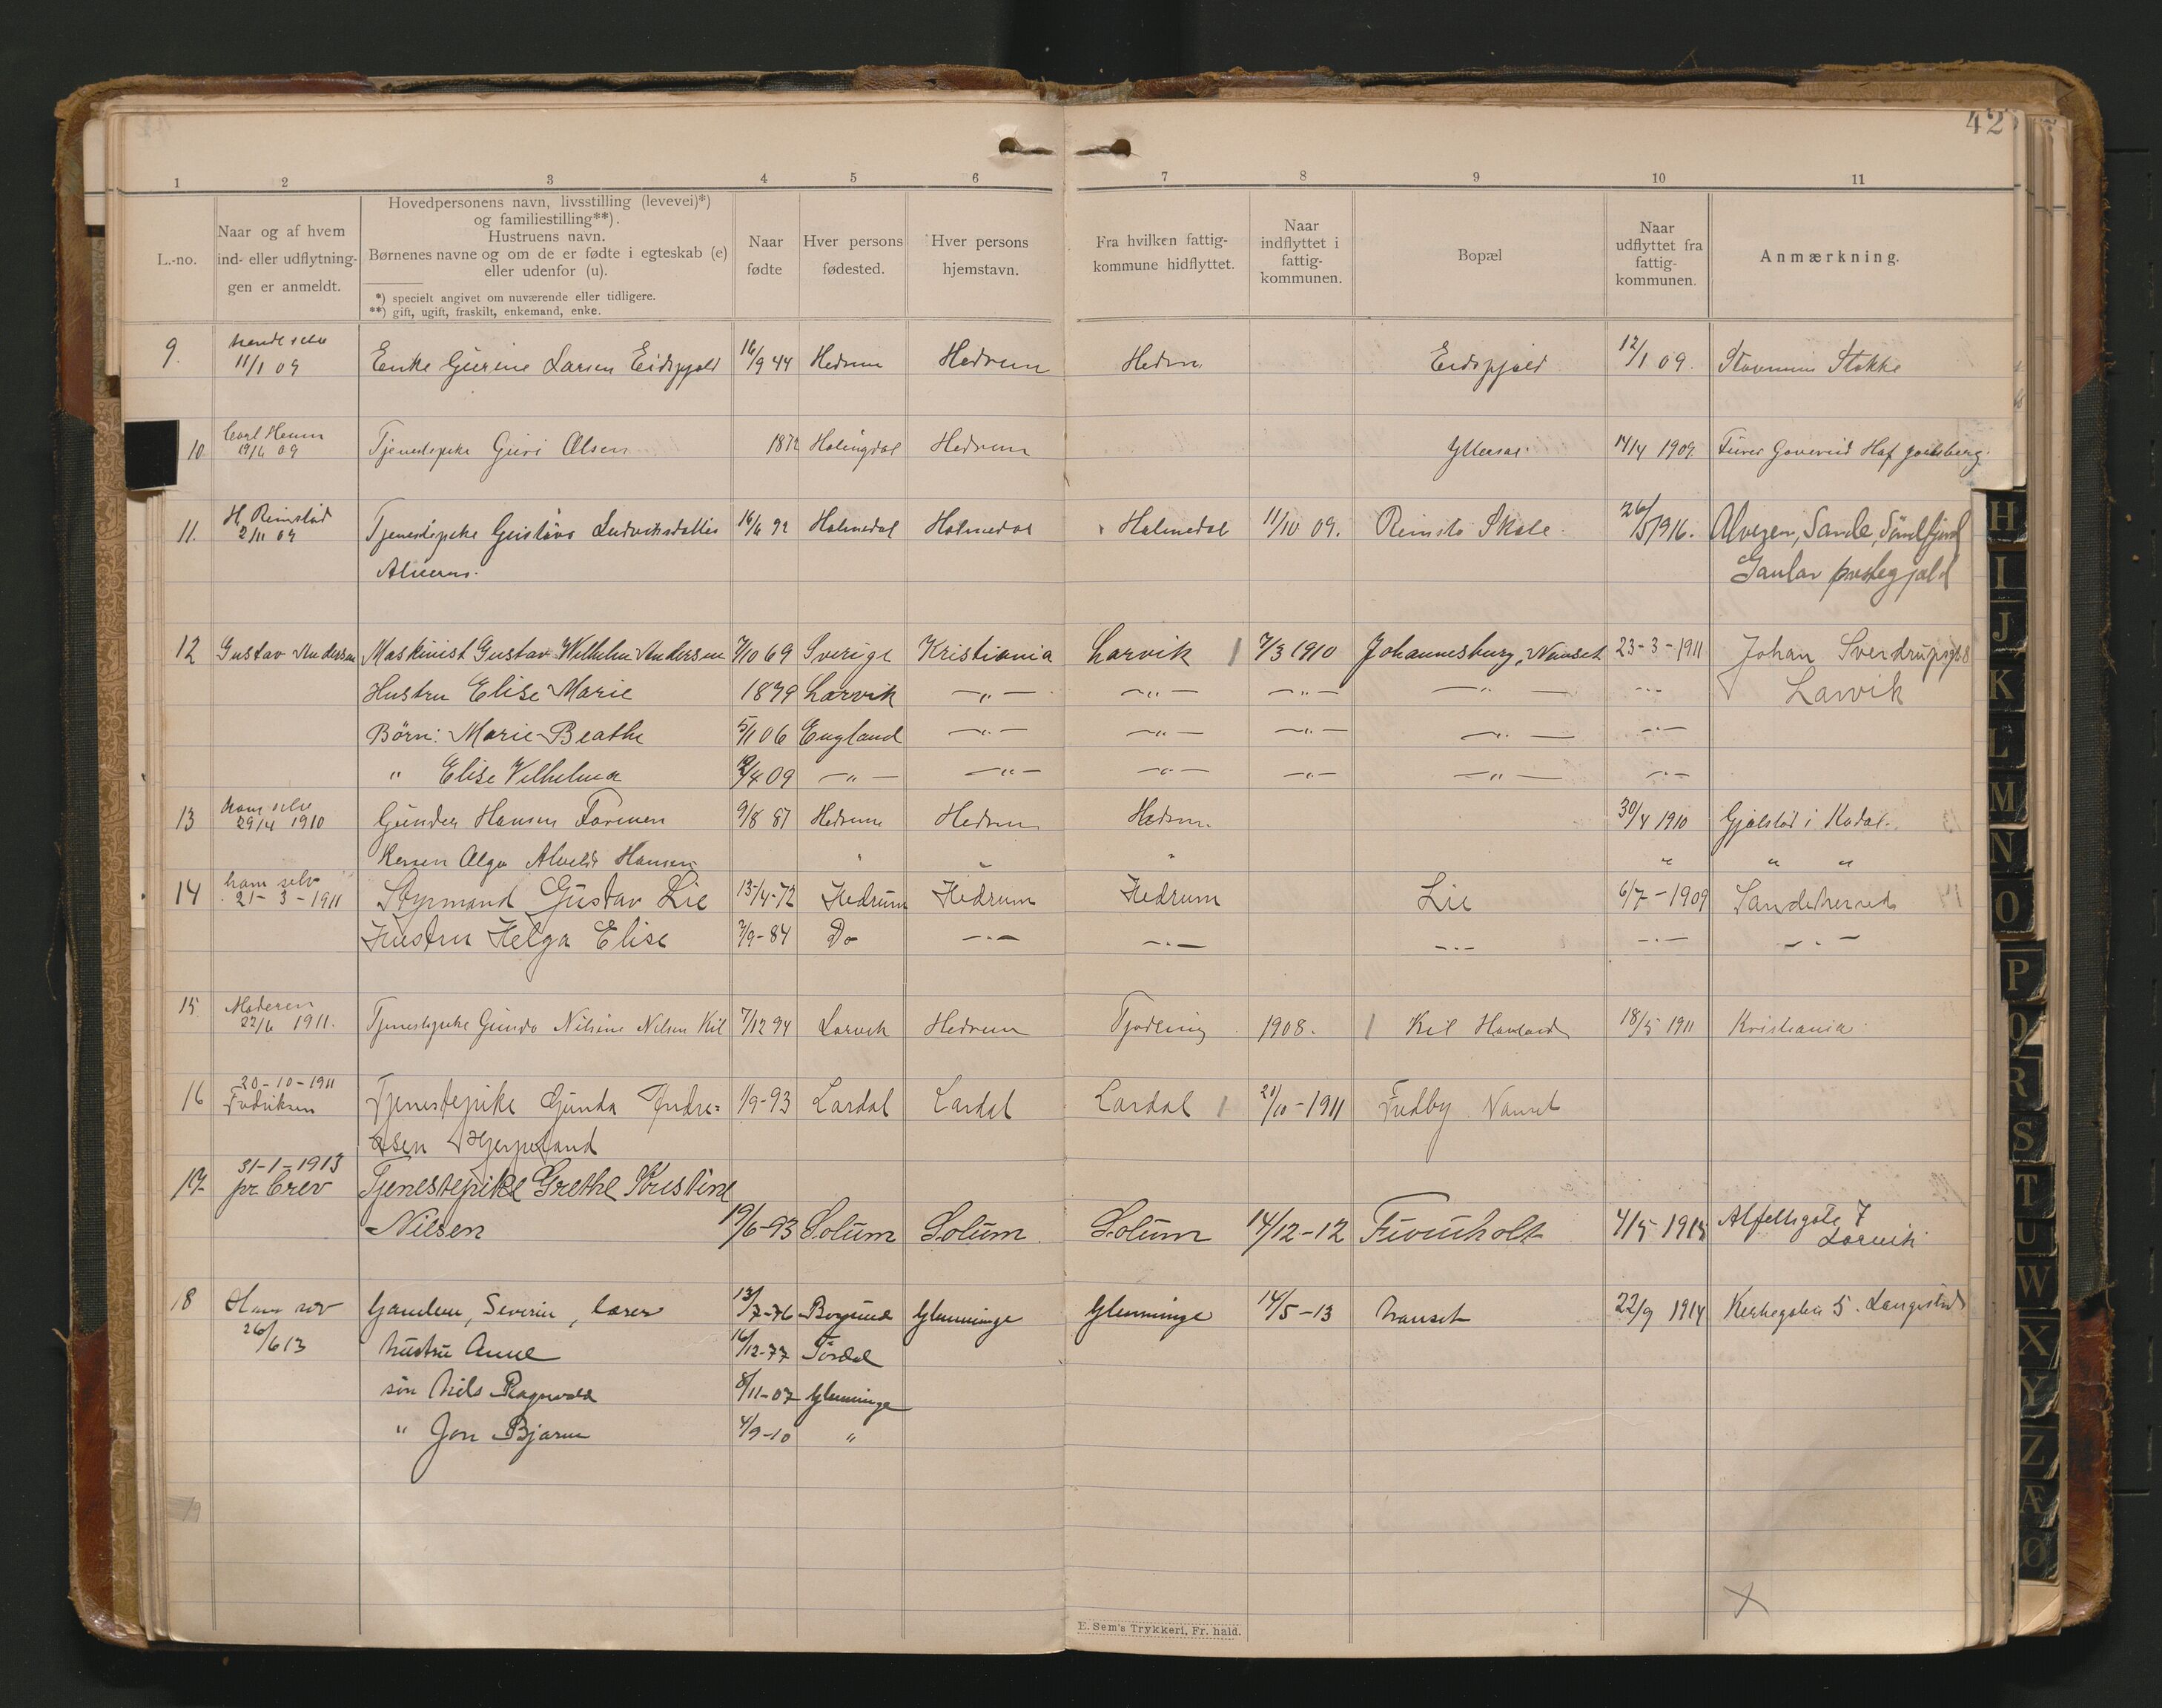 42
1 2 3 4 5 6 7 8 9 10 11
L.-no.
Naar og af hvem
ind- eller udflytnin-
gen er anmeldt.
Hovedpersonens navn, livsstilling (levevei)*)
og familiestilling**).
Hustruens navn.
Børnenes navne og om de er fødte i egteskab (e)
eller udenfor (u).
*) specielt angivet om nuværende eller tidligere.
**) gift, ugift, fraskilt, enkemand, enke.
Naar
fødte
Hver persons
fødested.
Hver persons
hjemstavn.
Fra hvilken fattig-
kommune hidflyttet.
Naar
indflyttet i
fattig-
kommunen.
Bopæl
Naar
udflyttet fra
fattig-
kommunen.
Anmærkning.
9. 11/1 09 Enke Gurine Larsen 16/9 44 Hedrum Hedrum Hedrum 12/1 09. Stokke
10 19/4 09 Tjenestepike Guri Olsen 1872 Halingdal Hedrum 14/4 1909
11. 2/11 09 Tjenestepike 16/6 92 Holmedal Holmedal Holmedal 11/10 09. Skole 26/5 1916. Sande, Søndfjord
Gaular prestegjæld
12 Gustav Andersen Maskinist Gustav Wilhelm Andersen 7/10 69 Sverige Kristiania Larvik 7/3 1910 Johannesburg, Nanset 23-3-1911 Johan Sverdrupsgt 8
Hustru Elise Marie 1879 Larvik —„— —„— —„— —„— —„— Larvik
Børn: Marie Beathe 5/1 06 England —„— —„— —„— —„— —„—
„ Elise Vilhelma /4 09 —„— —„— —„— —„— —„— —„—
13 ham selv
29/4 1910 Gunder Hansen Farmen 9/8 87 Hedrum Hedrum Hedrum. 30/4 1910 i Kodal.
Hansen „ „ „ „ „ „
14 ham selv
21-3-1911 Styrmand Gustav Lie 13/4-72 Hedrum Hedrum Hedrum Lie 6/7-1909 Sandeherred
Hustru Helga Elise 7/9-84 Do —„— —„— —„— —„— —„—
15. Moderen
22/6 1911. Tjenestepike Gunda Nilsine Nilsen Kil 7/12 94 Larvik Hedrum Tjødling 1908. Kil 18/5 1911 Kristiania.
16 20-10-1911
Fredriksen Tjenestepike Gunda Andre=
asen 1/9-93 Lardal Lardal Lardal 20/10-1911 Fredby Nanset
17 31-1-1913
pr. brev Tjenestepike Grethe Kristine
Nilsen 19/6-93 Solum Solum Solum 14/12-12 Furuholt 4/5 1915 7
Larvik
18 Ham selv
26/6 13 Gamlem, Severin, lærer 13/7-76 Borgund Glemminge Glemminge 14/5-13 Nanset 22/9 1914 Kirkegaten 5.
hustru Anne 16/12-77
søn Nils Ragnvald 8/11-07 Glemminge
„ Jon Bjarne 4/9-10 „
19
E. Sem's Trykkeri, Fr. hald.
H
I
J
K
L
M
N
O
P
Q
R
S
T
U
W
X
Y
Z
Æ
Ø